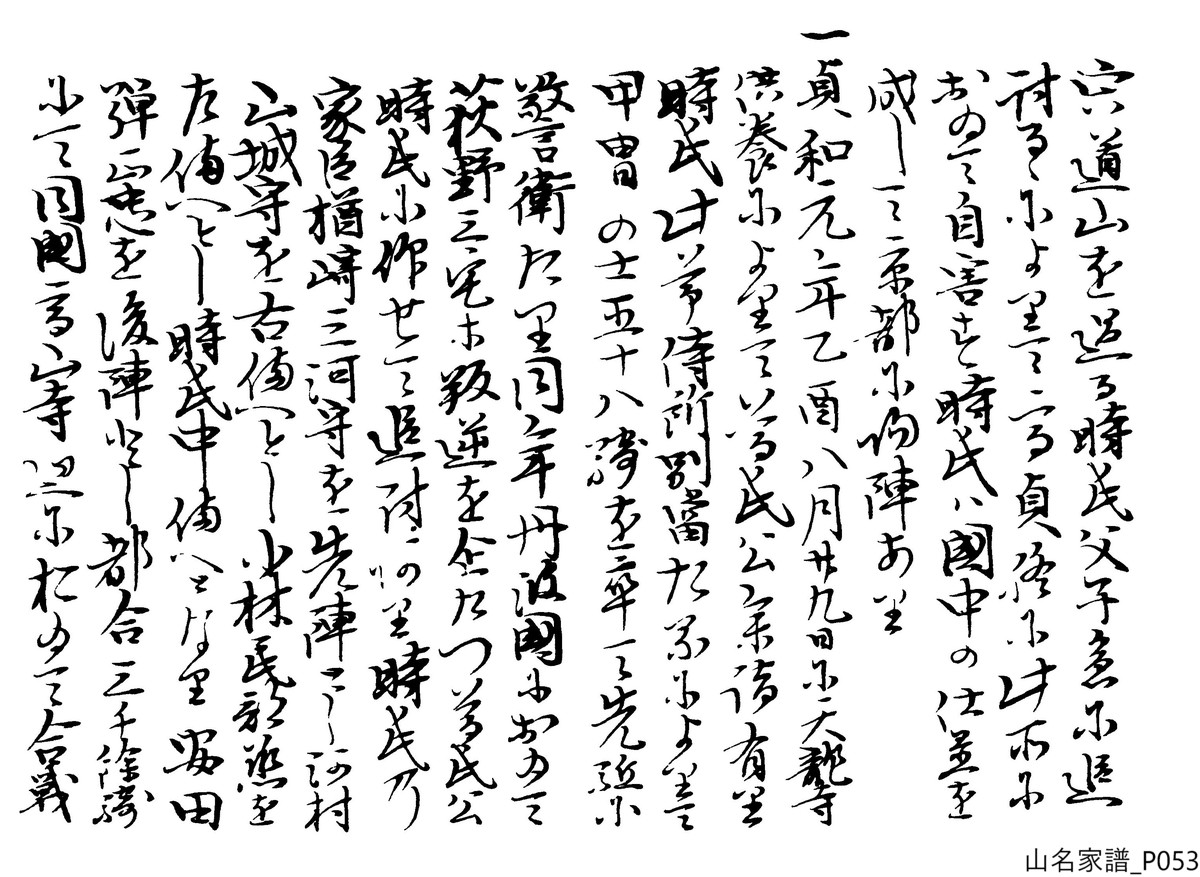 宍道山を過る時氏父子急に追
討るゝによりて高貞終に此所に
おゐて自害す時氏ハ國中の仕置を
成して京都に帰陣あり
一貞和元年乙酉八月廿九日に天龍寺
供養によりて尊氏公参詣有り
時氏此節侍所別當たるによりて
甲冑の士五十八騎を率して先駈に
警衛たり同年丹波國におゐて
荻野三宅等叛逆を企たつ尊氏公
時氏に仰せて追討にのり時氏乃
家臣楢崎三河守を先陣とし河村
山城守を右備へとし小林民部丞を
左備へとし時氏中備へとなり安田
弾正忠を後陣とし都合三千餘騎
にて同國高山寺辺に於ゐて合戦
山名家譜_P053